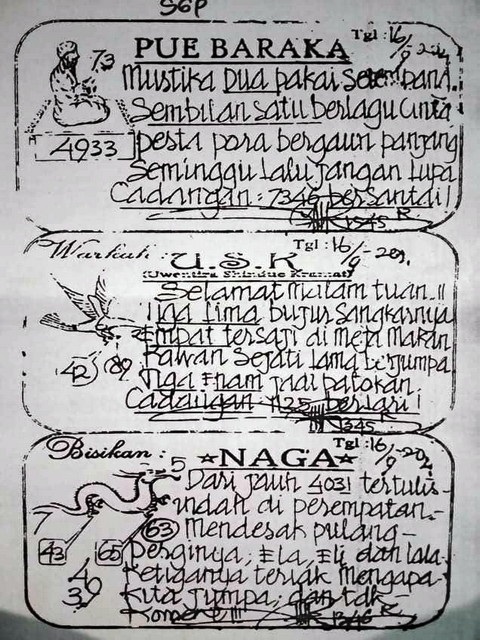 SGP
PUE BARAKA
Tgl : 16/9-2021
73
Mustika Dua pakai Selendang.
Sembilan satu berlagu Cinta
4933
pesta pora bergaun panjang
Seminggu Lalu jangan Lupa
Cadangan : 7346 bersantai !
1545 R
Warkah :
U.S.K
Tgl : 16/9-2021.
(Uwentira Shindue Kramat)
Selamat Malam tuan..!!
Tiga Lima bujur sangkarnya
Empat tersaji di meja Makan
42 89
Kawan Sejati Lama berjumpa
Tiga Enam jadi patokan.
Cadangan 1125 berlari !
1345
Bisikan :
Tgl : 16/9-2021
NAGA
5
Dari jauh 4031 tertulis-
indah di perempatan.-
7
63 Mendesak pulang-
43 65
perginya, Ela, Eli dan lala-
40
Ketiganya teriak Mengapa-
39
Kita jumpa, dan tak-
Komen !!!
1346 R